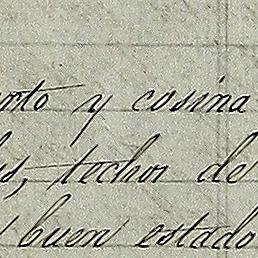 y cosina
techos de
buen estado